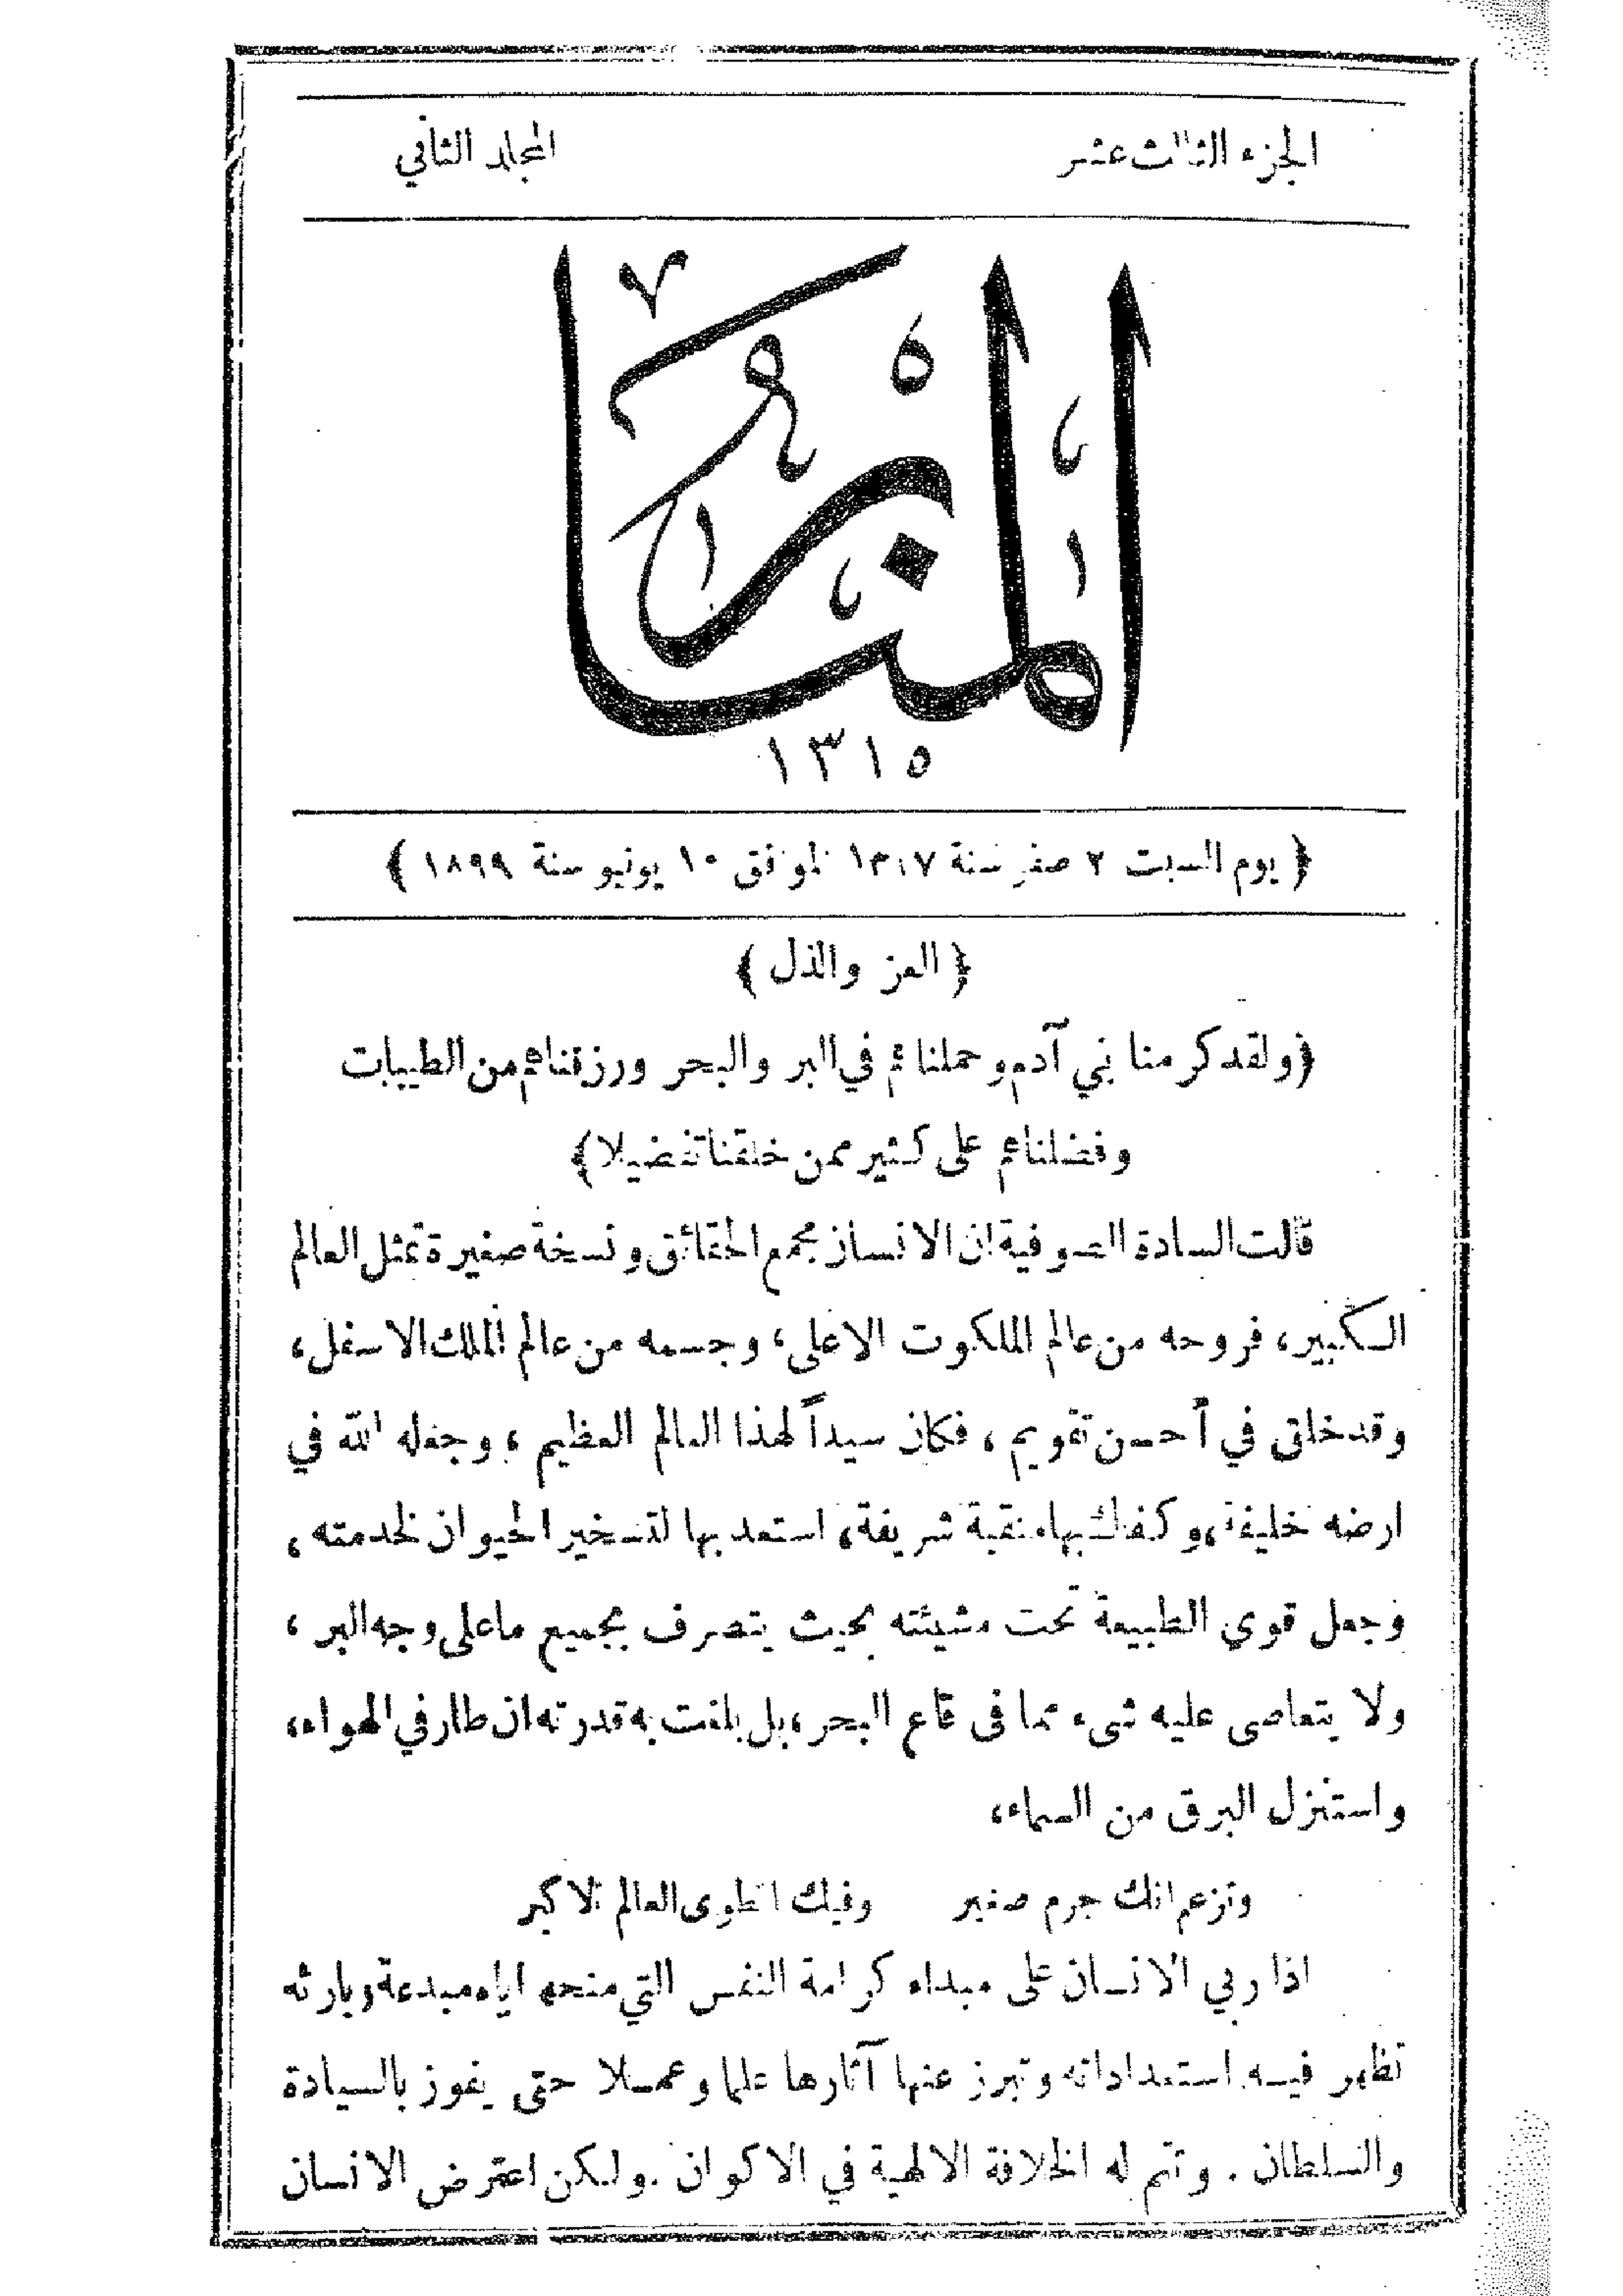 الجزء الثالث عشر
المجلد الثاني
المنار
١٣١٥
﴿ يوم السبت ٢ صفر سنة ١٣١٧ الموافق ١٠ يونيو سنة ١٨٩٩ ﴾
﴿ العز والذل ﴾
﴿ولقد كرمنا بني آدم وحملناهم في البر والبحر ورزقناهم من الطيبات
وفضلناهم على كثير ممن خلقنا تفضيلا﴾
قالت السادة الصوفية ان الانسان مجمع الحقائق ونسخة صغيرة تمثل العالم
الكبير، فروحه من عالم الملكوت الاعلى، وجسمه من عالم الملك الاسفل،
وقد خلق في أحسن تقويم، فكان سيداً لهذا العالم العظيم، وجعله الله في
ارضه خليفة، وكفاك بها منقبة شريفة، استعد بها لتسخير الحيوان لخدمته،
وجعل قوي الطبيعة تحت مشيئته بحيث يتصرف بجميع ما على وجه البر،
ولا يتعاصى عليه شىء مما فى قاع البحر، بل بلغت به قدرته ان طار في الهواء،
واستنزل البرق من السماء،
وتزعم انك جرم صغير وفيك انطوى العالم الاكبر
اذا ربي الانسان على مبداء كرامة النفس التي منحه اياه مبدعة وبارئه
تظهر فيه استعداداته وتبرز عنها آثارها علما وعملا حتى يفوز بالسيادة
والسلطان. وتتم له الخلافة الالهية في الاكوان. ولكن اعترض الانسان